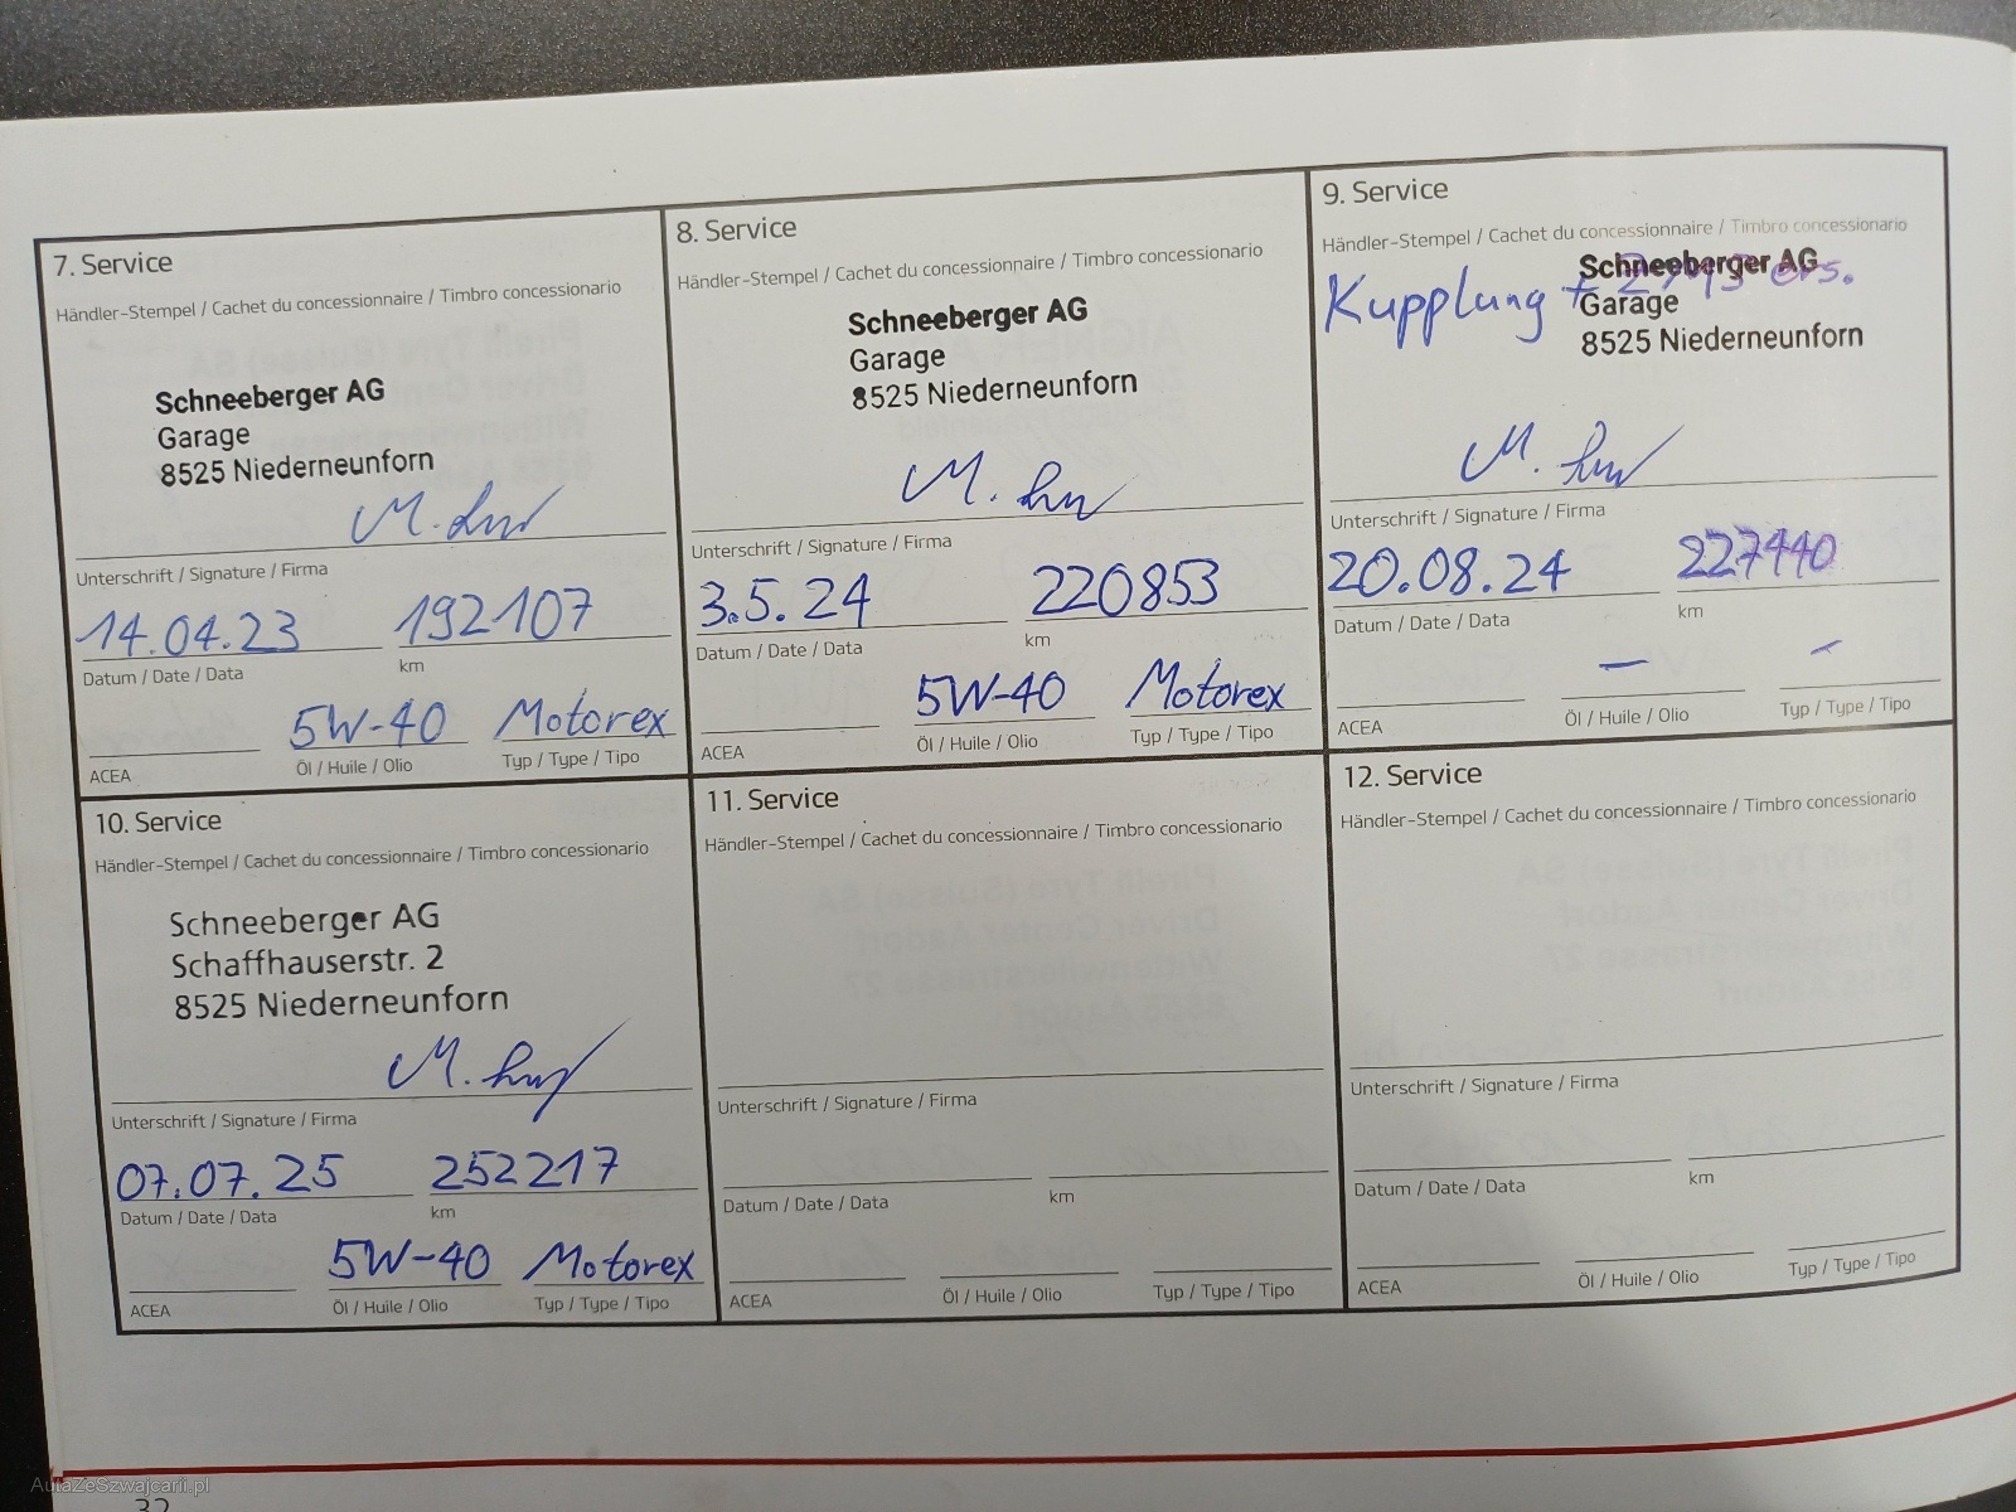 7. Service
Händler-Stempel / Cachet du concessionnaire / Timbro concessionario
Schneeberger AG
Garage
8525 Niederneunforn
Unterschrift / Signature / Firma
14.04.23 192107
Datum / Date / Data km
5W-40 Motorex
ACEA Öl / Huile / Olio Typ / Type / Tipo
8. Service
Händler-Stempel / Cachet du concessionnaire / Timbro concessionario
Schneeberger AG
Garage
8525 Niederneunforn
Unterschrift / Signature / Firma
3.5.24 220853
Datum / Date / Data km
5W-40 Motorex
ACEA Öl / Huile / Olio Typ / Type / Tipo
9. Service
Händler-Stempel / Cachet du concessionnaire / Timbro concessionario
Schneeberger AG
Kupplung + ers.
Garage
8525 Niederneunforn
Unterschrift / Signature / Firma
20.08.24 227440
Datum / Date / Data km
- -
ACEA Öl / Huile / Olio Typ / Type / Tipo
10. Service
Händler-Stempel / Cachet du concessionnaire / Timbro concessionario
Schneeberger AG
Schaffhauserstr. 2
8525 Niederneunforn
Unterschrift / Signature / Firma
07.07.25 252217
Datum / Date / Data km
5W-40 Motorex
ACEA Öl / Huile / Olio Typ / Type / Tipo
11. Service
Händler-Stempel / Cachet du concessionnaire / Timbro concessionario
Unterschrift / Signature / Firma
Datum / Date / Data km
ACEA Öl / Huile / Olio Typ / Type / Tipo
12. Service
Händler-Stempel / Cachet du concessionnaire / Timbro concessionario
Unterschrift / Signature / Firma
Datum / Date / Data km
ACEA Öl / Huile / Olio Typ / Type / Tipo
AutaZeSzwajcarii.pl
32